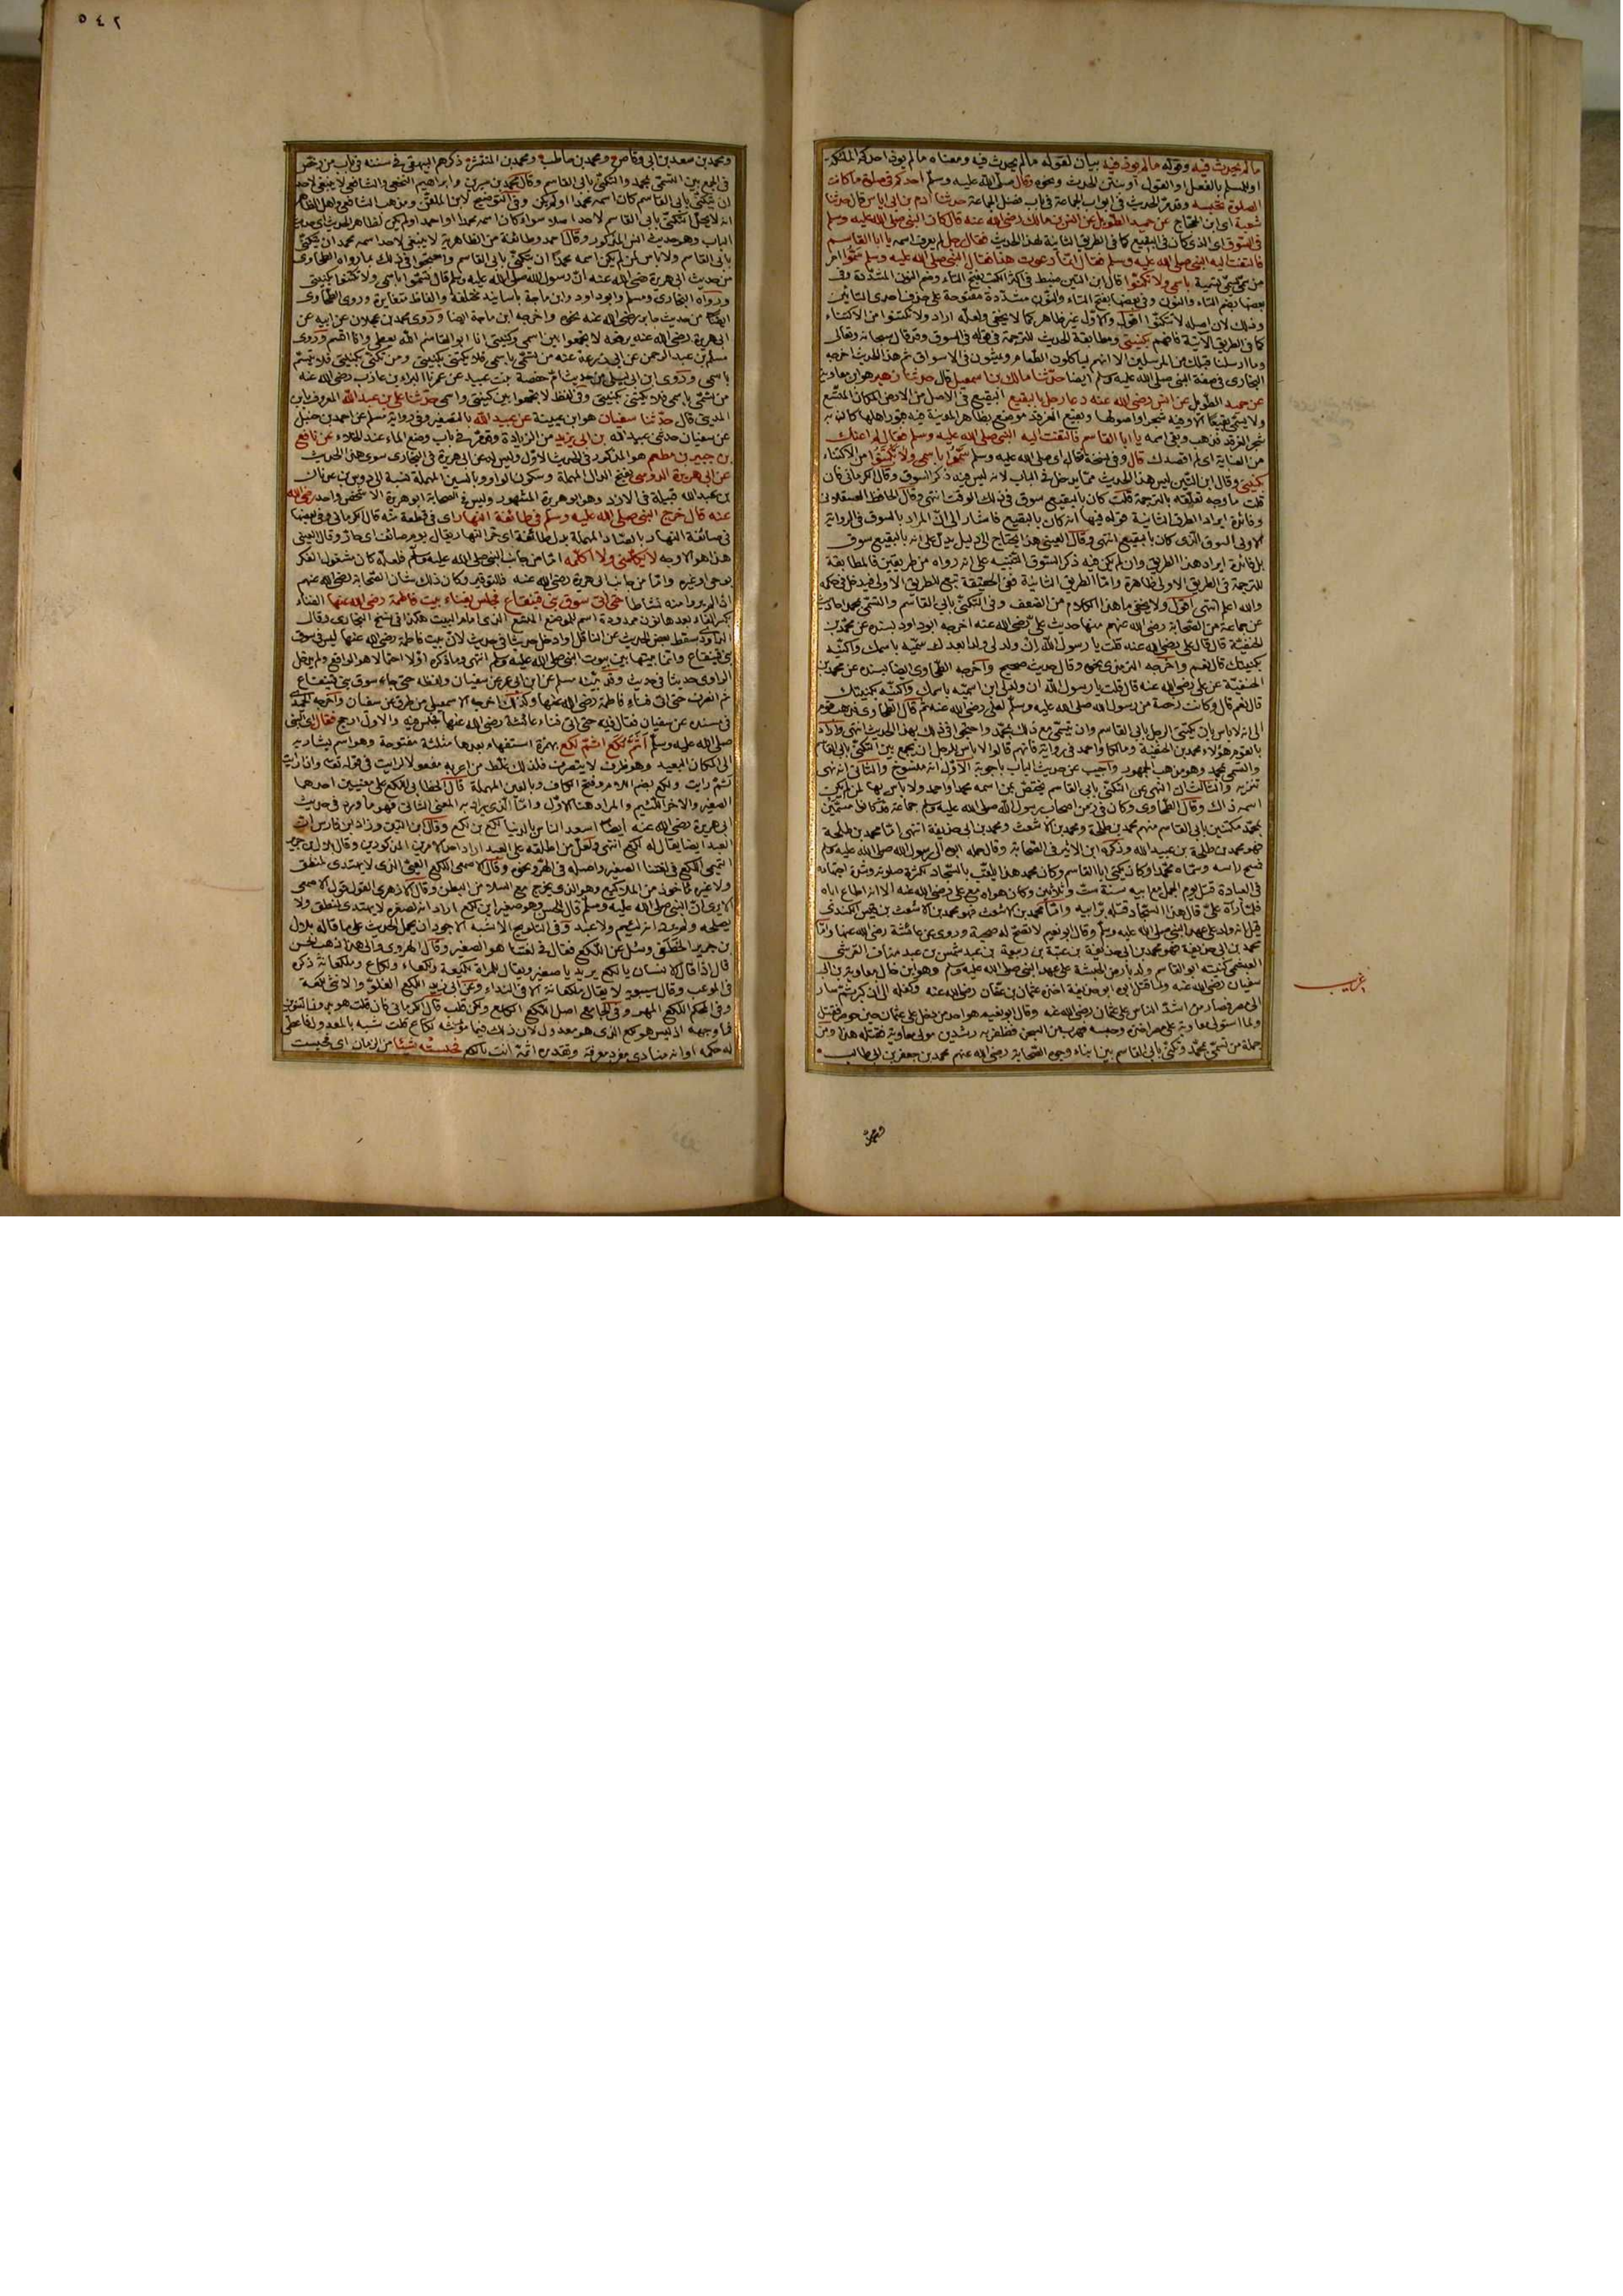 ما لم يحدث فيه وقوله ما لم يوذ فيه بيان لقوله ما لم يحدث فيه ومعناه ما لم يوذ احدكم الملئكة
او المسلم بالفعل او القول او بنتن الحدث ونحوه وقال صلى الله عليه وسلم احدكم في صلوة ما كانت
الصلوة تحبسه وقد مر الحديث في ابواب الجماعة في باب فضل الجماعة حدثنا ادم بن ابي اياس قال حدثنا
شعبة اي ابن الحجاج عن حميد الطويل عن انس بن مالك رضي الله عنه قال كان النبي صلى الله عليه وسلم
في السوق اي الذي كان في البقيع كما في الطريق الثانية لهذا الحديث فقال رجل لم يعرف اسمه يا ابا القاسم
فالتفت اليه النبي صلى الله عليه وسلم فقال انما دعوت هذا فقال النبي صلى الله عليه وسلم سموا امر
من سمى يسمى تسمية باسمي ولا تكنوا قال ابن التين ضبط في اكثر الكتب بفتح التاء وضم النون المشددة وفي
بعضها بضم التاء والنون وفي بعضها بفتح التاء والنون مشددة مفتوحة على حذف احدى التائين
كما في الطريق الآتية فافهم بكنيتي ومطابقة الحديث للترجمة في قوله في السوق وقد قال سبحانه وتعالى
وما ارسلنا قبلك من المرسلين الا انهم لياكلون الطعام ويمشون في الاسواق ثم هذا الحديث اخرجه
البخاري في صفة النبي صلى الله عليه وسلم ايضا حدثنا مالك بن اسمعيل قال حدثنا زهير هو ابن معاوية
عن حميد الطويل عن انس رضي الله عنه دعا رجل بالبقيع البقيع في الاصل من الارض المكان المتسع
ولا يسمى بقيعا الا وفيه شجر او اصولها وبقيع الغرقد موضع بظاهر المدينة فيه قبور اهلها كان به
شجر الغرقد فذهب وبقي اسمه يا ابا القاسم فالتفت اليه النبي صلى الله عليه وسلم فقال لم اعنك
من العناية اي لم اقصدك قال وفي نسخة فقال اي صلى الله عليه وسلم سموا باسمي ولا تكتنوا من الاكتناء
بكنيتي وقال ابن التين ليس هذا الحديث مما يدخل في الباب لانه ليس فيه ذكر السوق وقال الكرماني فان
قلت ما وجه تعلقه بالترجمة قلت كان بالبقيع سوق في ذلك الوقت انتهى وقال الحافظ العسقلاني
وفائدة ايراد الطريق الثانية قوله فيها انه كان بالبقيع فاشار الى ان المراد بالسوق في الرواية
الاولى السوق الذي كان بالبقيع انتهى وقال العيني هذا يحتاج الى دليل يدل على انه بالبقيع سوق
بل فائدة ايراد هذا الطريق وان لم يكن فيه ذكر السوق التنبيه على انه رواه من طريقين فالمطابقة
للترجمة في الطريق الاولى ظاهرة واما الطريق الثانية ففي الحقيقة تبع للطريق الاولى فيدخل في حكمه
والله اعلم انتهى اقول ولا يخفى ما هذا الكلام من الضعف وفي التكني بابي القاسم والتسمي بمحمد احاديث
عن جماعة من الصحابة رضي الله عنهم منها حديث علي رضي الله عنه اخرجه ابو داود بسنده عن محمد بن
الحنفية قال قال علي رضي الله عنه قلت يا رسول الله ان ولد لي ولد بعدك سميه باسمك واكنيه
بكنيتك قال نعم واخرجه الترمذي نحوه وقال حديث صحيح واخرجه الطحاوي ايضا بسنده عن محمد بن
الحنفية عن علي رضي الله عنه قال قلت يا رسول الله ان ولد لي ابن اسميه باسمك واكنيه بكنيتك
قال نعم قال وكانت رخصة من رسول الله صلى الله عليه وسلم لعلي رضي الله عنه ثم قال الطحاوي فذهب قوم
الى انه لا باس بان يكتني الرجل بابي القاسم وان يتسمى مع ذلك بمحمد واحتجوا في ذلك بهذا الحديث انتهى واراد
بالقوم هؤلاء محمد بن الحنفية ومالكا واحمد في رواية فانهم قالوا لا باس للرجل ان يجمع بين التكني بابي القاسم
والتسمي بمحمد وهو مذهب الجمهور واجيب عن حديث الباب باجوبة الاول انه منسوخ والثاني انه نهي
تنزيه والثالث ان النهي عن التكني بابي القاسم يختص بمن اسمه محمد او احمد ولا باس بها لمن لم يكن
اسمه ذلك وقال الطحاوي وكان في زمن اصحاب رسول الله صلى الله عليه وسلم جماعة قد كانوا مسمين
بمحمد مكتنين بابي القاسم منهم محمد بن طلحة ومحمد بن الاشعث ومحمد بن ابي حذيفة انتهى اما محمد بن طلحة
فهو محمد بن طلحة بن عبيد الله وذكره ابن الاثير في الصحابة وقال حمله ابوه الى رسول الله صلى الله عليه وسلم
فمسح راسه وسماه محمدا وكان يكنى ابا القاسم وكان محمد هذا يلقب بالسجاد لكثرة صلوته وشدة اجتهاده
في العبادة قتل يوم الجمل مع ابيه سنة ست وثلاثين وكان هواه مع علي رضي الله عنه الا انه اطاع اباه
فلما رآه علي قال هذا السجاد قتله بر ابيه واما محمد بن الاشعث فهو محمد بن الاشعث بن قيس الكندي
قيل انه ولد على عهد النبي صلى الله عليه وسلم وقال ابو نعيم لا تصح له صحبة وروى عن عائشة رضي الله عنها واما
محمد بن ابي حذيفة فهو محمد بن ابي حذيفة بن عتبة بن ربيعة بن عبد شمس بن عبد مناف القرشي
العبشمي كنيته ابو القاسم ولد بارض الحبشة على عهد النبي صلى الله عليه وسلم وهو ابن خال معاوية بن ابي
سفيان رضي الله عنه ولما قتل ابوه ابو حذيفة اخذ عثمان بن عفان رضي الله عنه وكفله الى ان كبر ثم سار
الى مصر فصار من اشد الناس على عثمان رضي الله عنه وقال ابو نعيم هو احد من دخل على عثمان حين حوصر فقتل
ولما استولى معاوية على مصر اخذه وحبسه فهرب من السجن فظفر به رشدين مولى معاوية فقتله هذا ومن
جملة من تسمى بمحمد وتكنى بابي القاسم من ابناء وجوه الصحابة رضي الله عنهم محمد بن جعفر بن ابي طالب
غريب
ومحمد
٥٤٢
ومحمد بن سعد بن ابي وقاص ومحمد بن حاطب ومحمد بن المنتشر ذكرهم البيهقي في سننه في باب من رخص
في الجمع بين التسمي بمحمد والتكني بابي القاسم وقال محمد بن سيرين وابراهيم النخعي والشافعي لا ينبغي لاحد
ان يتكنى بابي القاسم كان اسمه محمدا او لم يكن وفي التوضيح لابن الملقن ومذهب الشافعي واهل الظاهر
انه لا يحل التكني بابي القاسم لاحد اصلا سواء كان اسمه محمدا او احمد او لم يكن لظاهر الحديث اي حديث
الباب وهو حديث انس المذكور وقال احمد وطائفة من الظاهرية لا ينبغي لاحد اسمه محمد ان يتكنى
بابي القاسم ولا باس لمن لم يكن اسمه محمدا ان يتكنى بابي القاسم واحتجوا في ذلك بما رواه الطحاوي
من حديث ابي هريرة رضي الله عنه ان رسول الله صلى الله عليه وسلم قال تسموا باسمي ولا تكنوا بكنيتي
ورواه البخاري ومسلم وابو داود وابن ماجة باسانيد مختلفة والفاظ متغايرة وروى الطحاوي
ايضا من حديث جابر رضي الله عنه نحوه واخرجه ابن ماجة ايضا وروى محمد بن عجلان عن ابيه عن
ابي هريرة رضي الله عنه يرفعه لا تجمعوا بين اسمي وكنيتي انا ابو القاسم الله يعطي وانا اقسم وروى
مسلم بن عبد الرحمن عن ابي زرعة عنه من تسمى باسمي فلا يكتني بكنيتي ومن تكنى بكنيتي فلا يتسم
باسمي وروى ابن ابي ليلى من حديث ام حفصة بنت عبيد عن عمها البراء بن عازب رضي الله عنه
من تسمى باسمي فلا يكتني بكنيتي وفي لفظ لا تجمعوا بين كنيتي واسمي حدثنا علي بن عبد الله المعروف بابن
المديني قال حدثنا سفيان هو ابن عيينة عن عبيد الله بالتصغير وفي رواية مسلم عن احمد بن حنبل
عن سفيان حدثني عبيد الله بن ابي يزيد من الزيادة وقد مر في باب وضع الماء عند الخلاء عن نافع
بن جبير بن مطعم هو المذكور في الحديث الاول وليس له عن ابي هريرة في البخاري سوى هذا الحديث
عن ابي هريرة الدوسي بفتح الدال المهملة وسكون الواو وبالسين المهملة نسبة الى دوس بن عدنان
بن عبد الله قبيلة في الازد وهو ابو هريرة المشهور وليس في الصحابة ابو هريرة الا شخص واحد رضي الله
عنه قال خرج النبي صلى الله عليه وسلم في طائفة النهار اي في قطعة منه قال الكرماني وفي بعضها
في صائفة النهار بالصاد المهملة بدل طائفة اي حر النهار يقال يوم صائف اي حار وقال العيني
هذا هو الاوجه لا يكلمني ولا اكلمه اما من جانب النبي صلى الله عليه وسلم فلعله كان مشغول الفكر
بوحي او غيره واما من جانب ابي هريرة رضي الله عنه فللتوقير وكان ذلك شان الصحابة رضي الله عنهم
اذا لم يروا منه نشاطا حتى اتى سوق بني قينقاع فجلس بفناء بيت فاطمة رضي الله عنها الفناء
بكسر الفاء بعدها نون ممدودة اسم للموضع المتسع الذي امام البيت هكذا في نسخ البخاري وقال
الداودي سقط بعض الحديث عن الناقل او ادخل حديثا في حديث لان بيت فاطمة رضي الله عنها ليس في سوق
بني قينقاع وانما بيتها بين بيوت النبي صلى الله عليه وسلم انتهى وما ذكره اولا احتمالا هو الواقع ولم يدخل
الراوي حديثا في حديث وقد بينه مسلم عن ابن ابي عمر عن سفيان ولفظه حتى جاء سوق بني قينقاع
ثم انصرف حتى اتى فناء فاطمة رضي الله عنها وكذلك اخرجه الاسمعيلي من طرق عن سفيان واخرجه الحميدي
في مسنده عن سفيان فقال فيه حتى اتى فناء عائشة رضي الله عنها فجلس فيه والاول ارجح فقال اي النبي
صلى الله عليه وسلم أثم لكع اثم لكع بهمزة استفهام بعدها مثلثة مفتوحة وهو اسم يشار به
الى المكان البعيد وهو ظرف لا يتصرف فلذلك غلط من اعربه مفعولا لرايت في قوله تعالى واذا رايت
ثم رايت ولكع بضم اللام وفتح الكاف وبالعين المهملة قال الخطابي اللكع على معنيين احدهما
الصغير والاخر اللئيم والمراد هنا الاول واما الذي يراد به المعنى الثاني فهو ما ورد في حديث
ابي هريرة رضي الله عنه ايضا اسعد الناس بالدنيا لكع بن لكع وقال ابن التين وزاد ابن فارس ان
العبد ايضا يقال له لكع انتهى ولعل من اطلقه على العبد اراد احد الامرين المذكورين وقال بلال بن جرير
التيمي اللكع في لغتنا الصغير واصله في المهر ونحوه وقال الاصمعي اللكع العيي الذي لا يهتدي لمنطق
ولا غيره ماخوذ من الملاكيع وهو الذي يخرج مع السلا من البطن وقال الازهري القول قول الاصمعي
الا يرى ان النبي صلى الله عليه وسلم قال للحسن وهو صغير اين لكع اراد انه لصغره لا يهتدي لمنطق ولا
يصلحه ولم يرد انه لئيم ولا عبد وفي التلويح الاشبه الاجود ان يحمل الحديث على ما قاله بلال
بن جرير الخطفي وسئل عن اللكع فقال في لغتنا هو الصغير وقال الهروي والى هذا ذهب الحسن
قال اذا قال الانسان يا لكع يريد يا صغير ويقال للمراة لكيعة ولكعاء ولكاع وملكعانة ذكره
في الموعب وقال سيبويه لا يقال ملكعانة الا في النداء وعن ابي زيد اللكع الفلو والانثى لكعة
وفي المحكم اللكع المهر وفي الجامع اصل اللكع الكلع ولكن قلب قال الكرماني فان قلت هو غير منصرف
فما وجهه اذ ليس هو لكع الذي هو معدول لان ذلك فيما مؤنثه لكاع قلت شبه بالمعدول فاعطي
له حكمه او انه منادى مفرد معرفة وتقديره اثمة انت يا لكع فحبسته شيئا من الزمان اي فحبست